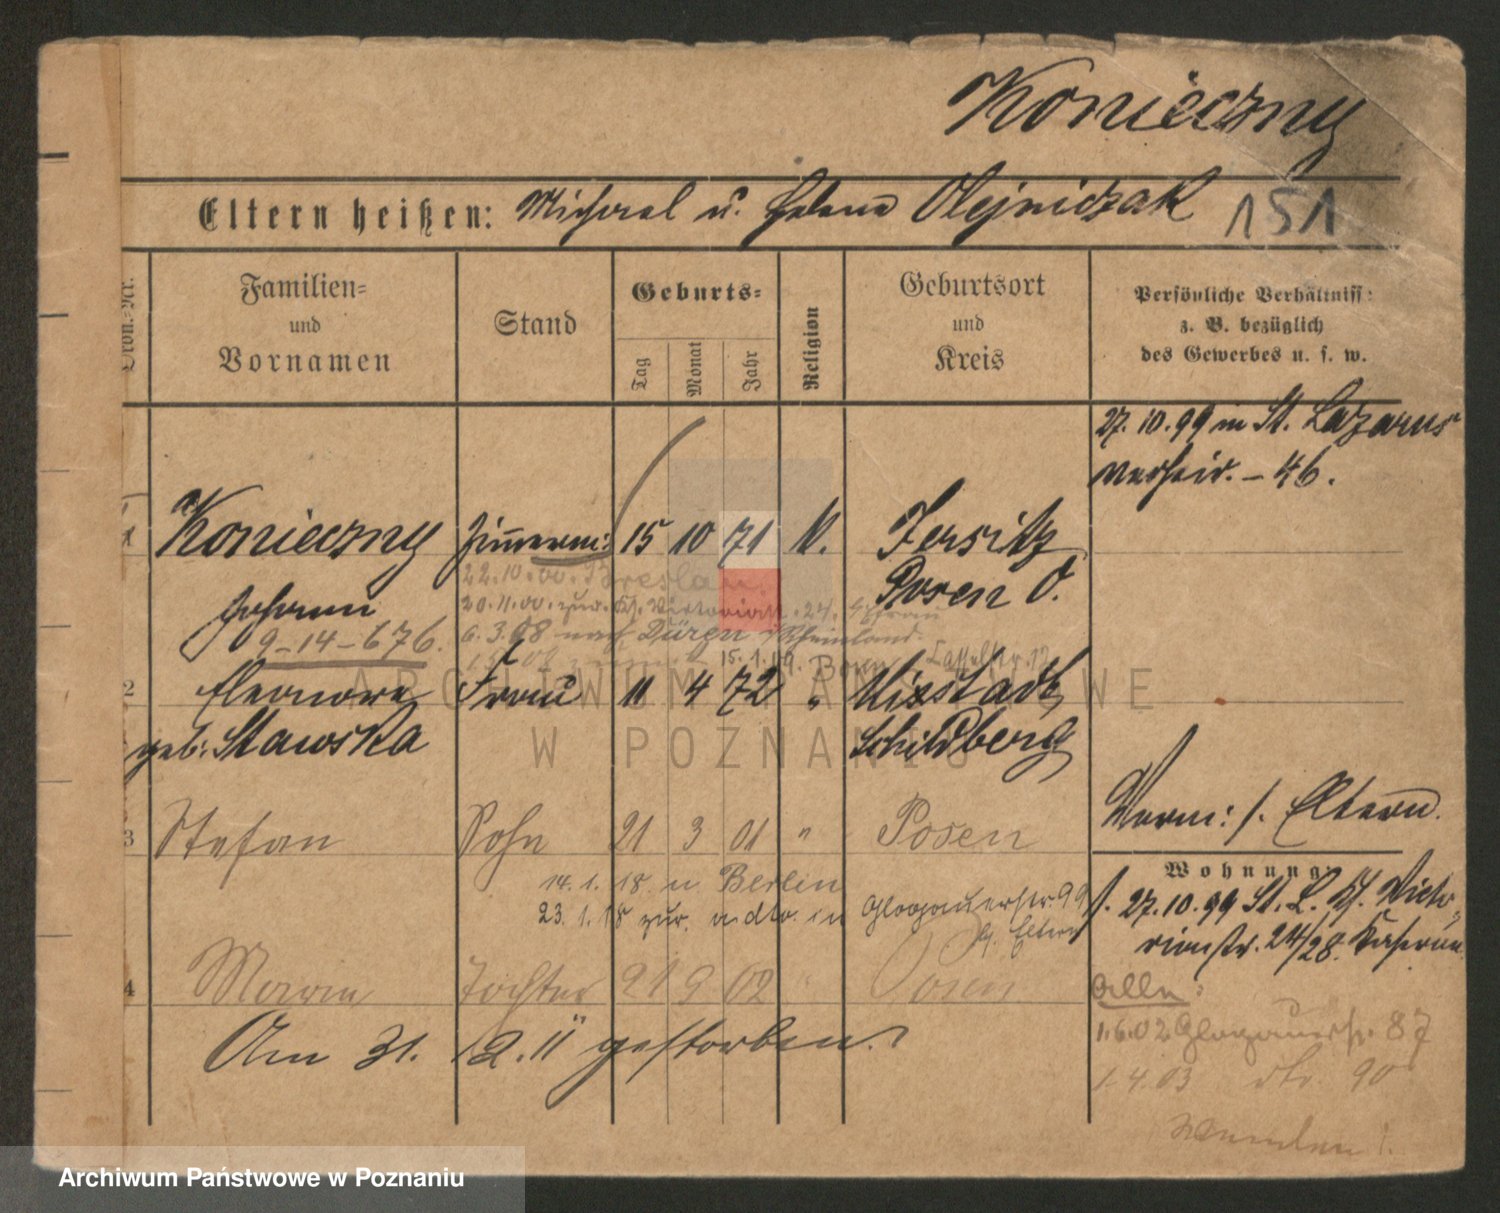 Konieczny
Eltern heißen: Michael u. Helene Olejniczak 151
Ordn.-Nr.
Familien-
und
Vornamen
Stand
Geburts-
Tag
Monat
Jahr
Religion
Geburtsort
und
Kreis
Persönliche Verhältniss:
z. B. bezüglich
des Gewerbes u. s. w.
27. 10. 99 in St. Lazarus
verheir. - 46.
1 Konieczny Zimmerm: 15 10 71 K. Jersitz
Johann Posen O.
22.10.00. Breslau
20.11.00. zur.
9-14-676.
6.3.08 nach Düren Rheinland.
15.1.09.
2 Eleonore Frau 11 4 72 " Mixstadt
geb: Stawska Schildberg
3 Stefan Sohn 21 3 01 " Posen
Verm: s. Eltern.
14. 1. 18. n Berlin
23. 1. 18 zur. v. dto. in Glogauerstr. 99
b. Eltern
Wohnung
27.10.99 St. L. Kl. Victo-
riastr. 24/28. Kaserne
4 Marie Tochter 21 9 02 Posen
Alle:
Am 31. 12. 11 gestorben.
1.6.02 Glogauerstr. 87
1.4.03 dto. 90
ARCHIWUM PAŃSTWOWE
W POZNANIU
Archiwum Państwowe w Poznaniu